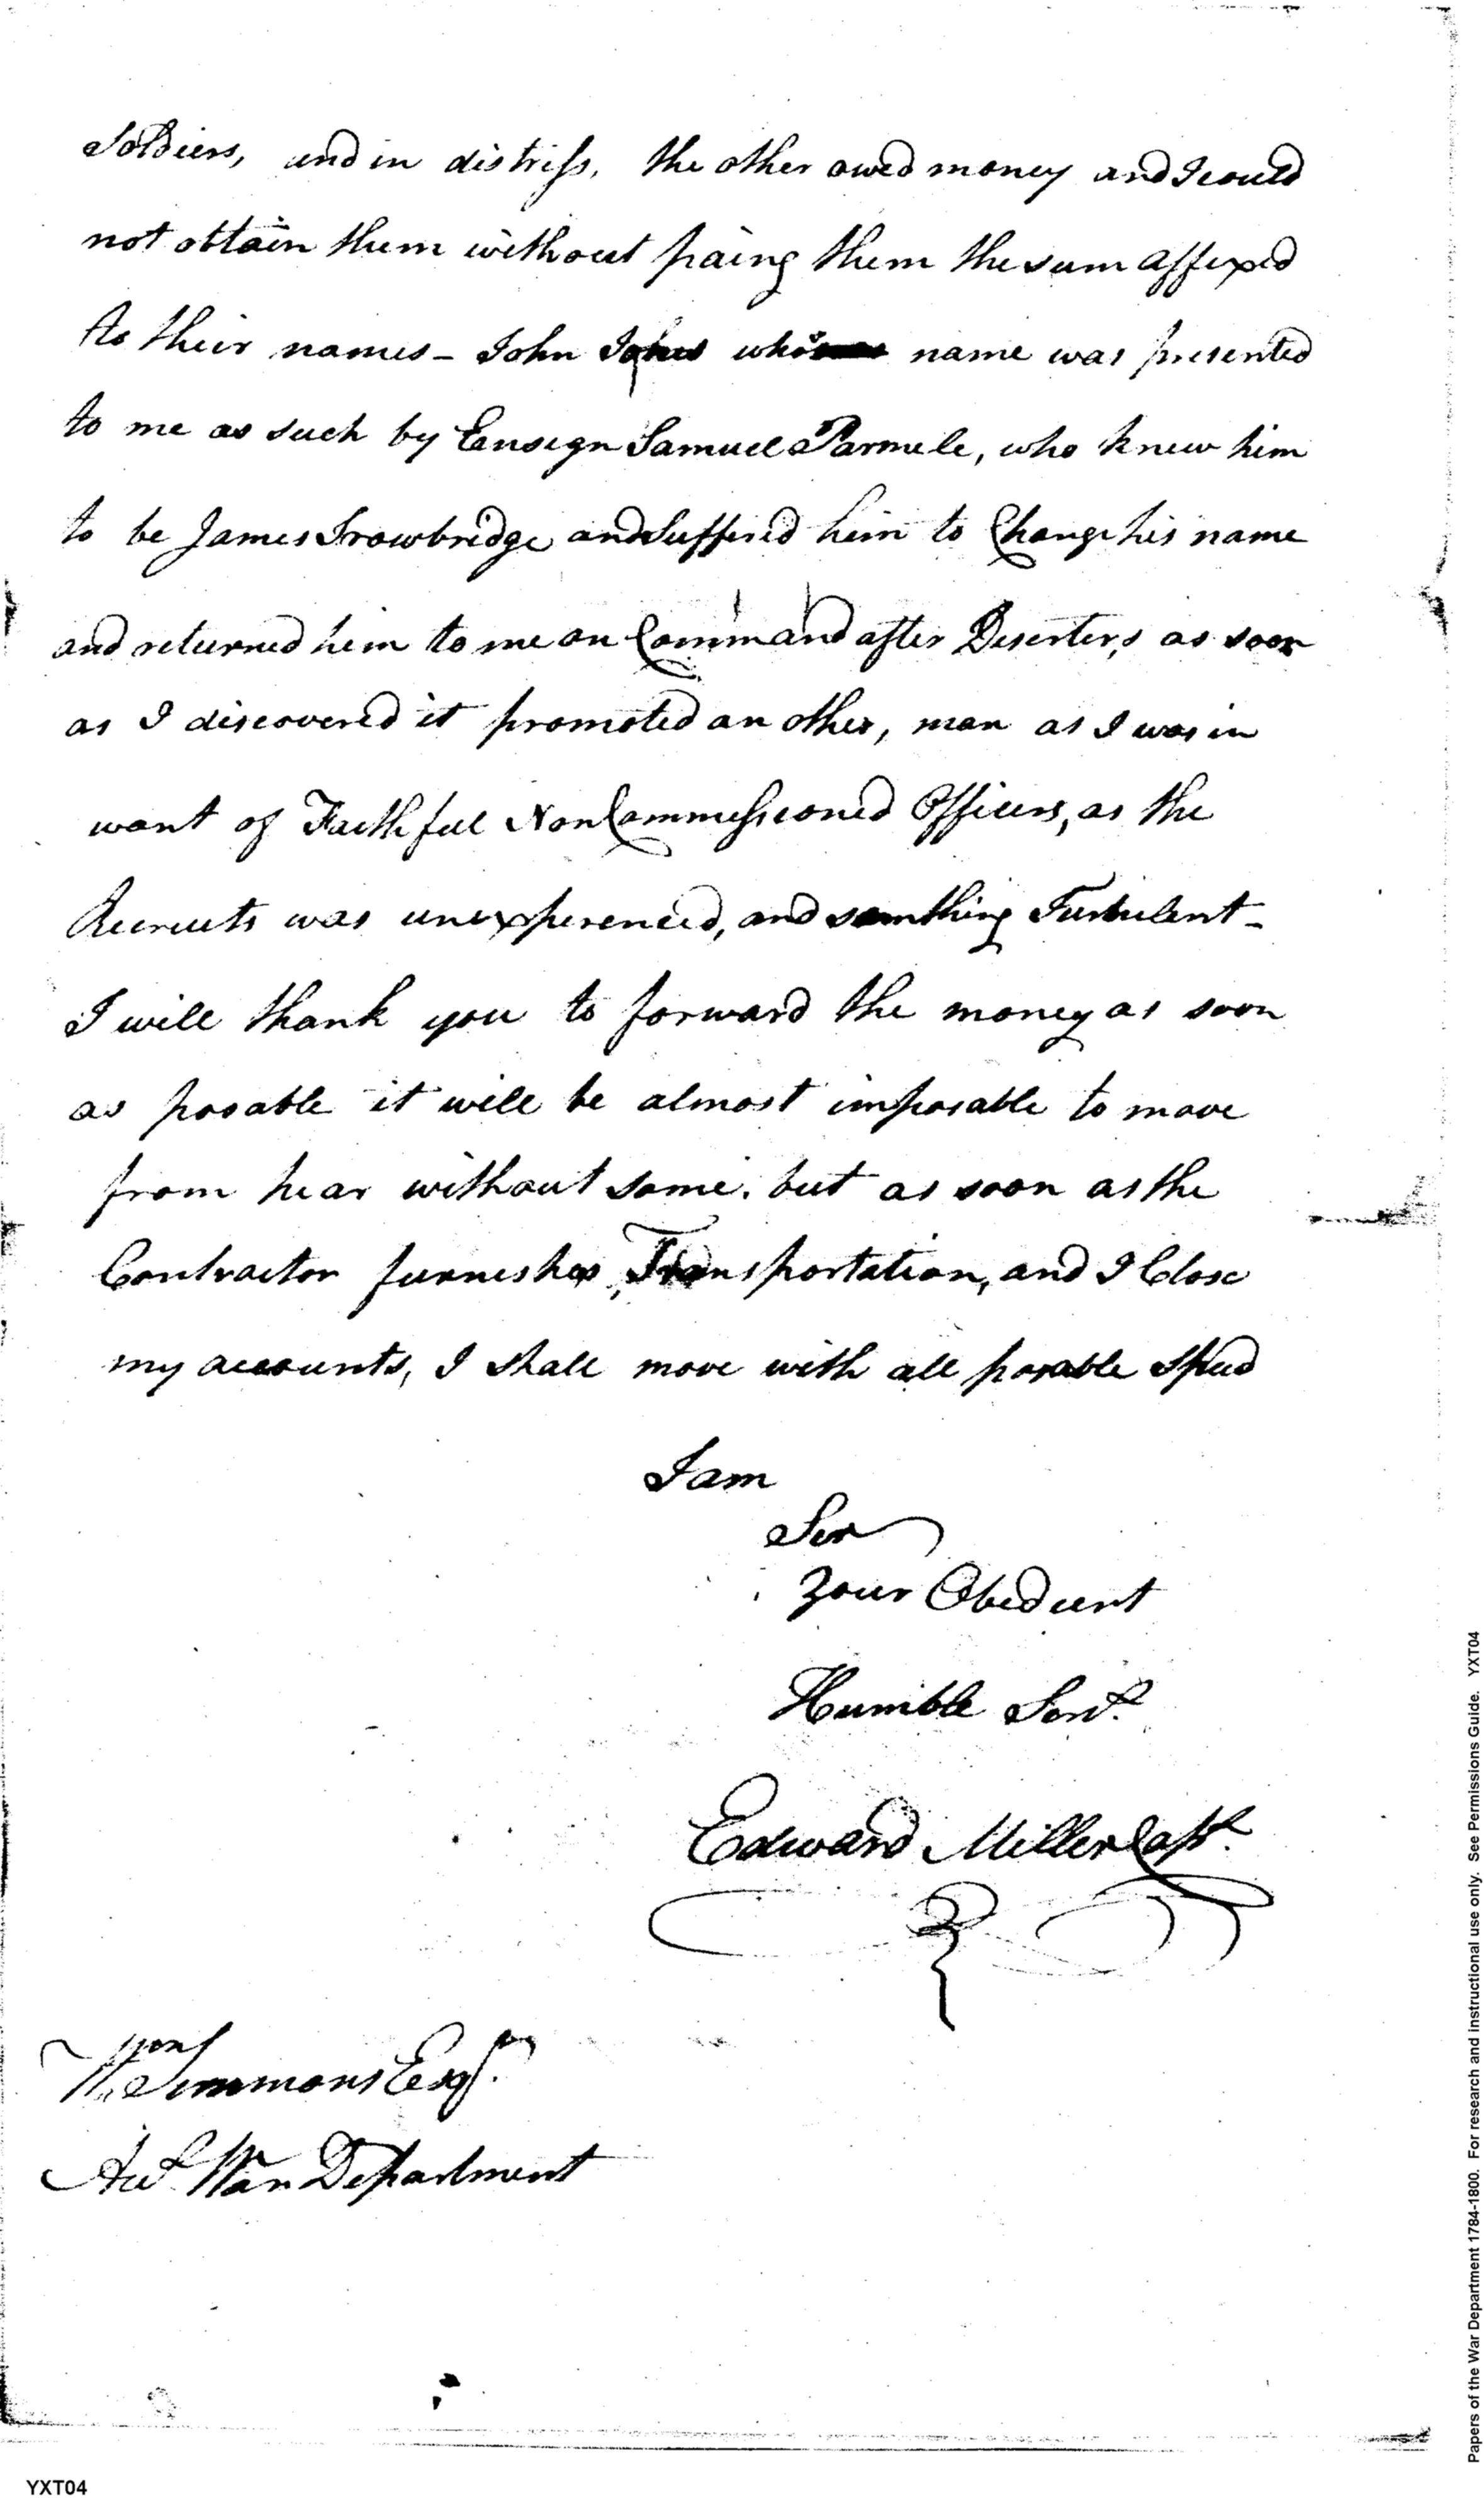 Soldiers, and in distress, the other owed money and I could
not obtain them without paing them the sum affixed
to their names - John Jones whos name was presented
to me as such by Ensign Samuel Parmele, who knew him
to be James Trowbridge and Suffered him to Change his name
and returned him to me on Command after Deserters, as soon
as I discovered it promoted an other, man as I was in
want of Faithful Non Commissioned Officers, as the
Recruits was unexperenced, and somthing Turbulent -
I will thank you to forward the money as soon
as posable it will be almost imposable to move
from hear without some. but as soon as the
Contractor furnishes, Transportation, and I Close
my accounts, I shall move with all posable Speed
I am
Sir
Your Obedient
Humble Servt.
Edward Miller Capt.
Wm Simmons Esqr.
Act. War Department
Papers of the War Department 1784-1800. For research and instructional use only. See Permissions Guide. YXT04
YXT04